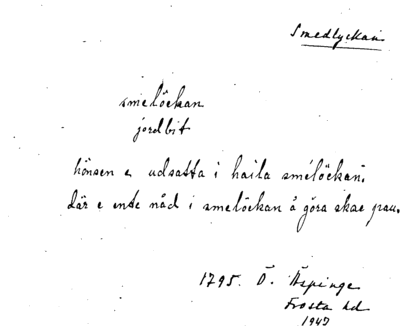 Smedlyckan
smelöckan
jordbit
hönsen e udsatta i haila smelöckan.
där e ente nåd i smelöckan å göra skae pau.
1795. Ö. Äspinge
Frosta hd
1947